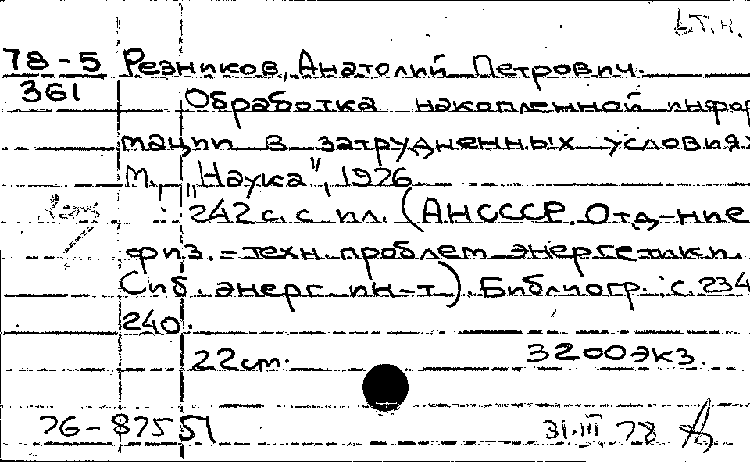 вт.н.
78-5 Резников, Анатолий Петрович.
361 Обработка накопленной инфор
мации в затрудненных условиях
М., "Наука", 1976
242 с. с ил. (АНСССР. Отд-ние
физ.-техн. проблем энергетики.
Сиб. энерг. ин-т). Библиогр. с. 234
240.
22см. 3200экз.
76-87551 31.III 78